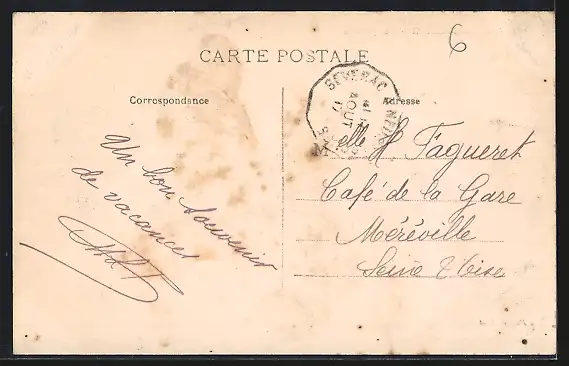 6
CARTE POSTALE
Correspondance
Adresse
SEVERAC
AOUT
Un bon souvenir
de vacances
Melle H Fagueret
Café de la Gare
Méréville
Seine & Oise